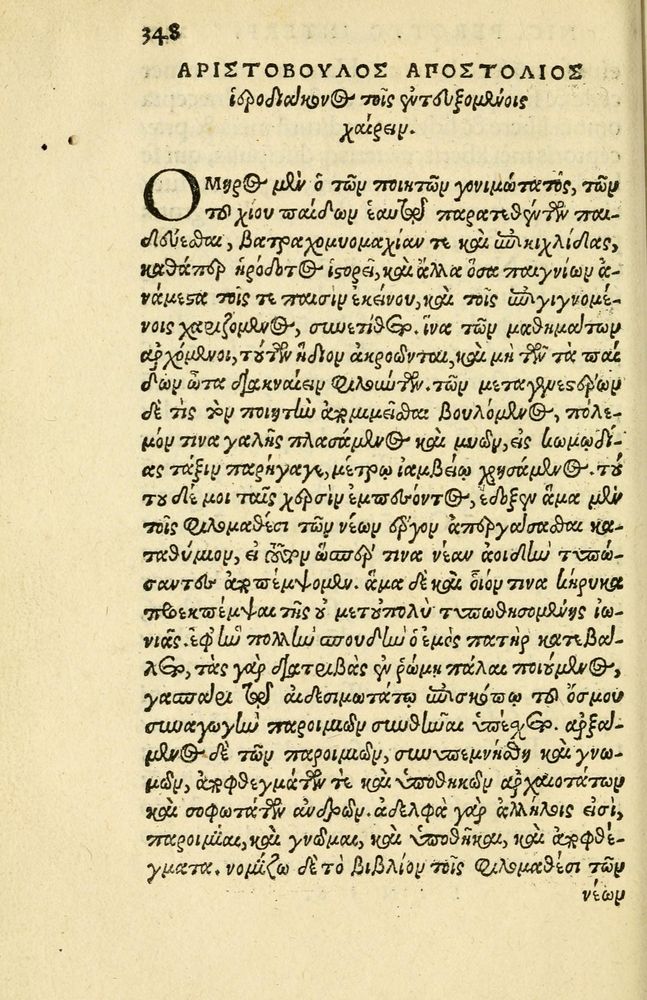 348
ΑΡΙΣΤΟΒΟΥΛΟΣ ΑΠΟΣΤΟΛΙΟΣ
ἱεροδιάκονος τοῖς ἐντευξομένοις
χαίρειν.
Ομηρος μὲν ὁ τῶν ποιητῶν γονιμώτατος, τῶν
τοῦ χίου παίδων ἑαυτῷ παρατεθέντων παι-
δεύεσθαι, βατραχομυομαχίαν τε καὶ ἐπικιχλίδας,
καθάπερ ἡρόδοτος ἱστορεῖ, καὶ ἄλλα ὅσα παιγνίων ἀ-
νάμεστα τοῖς τε παισὶν ἐκείνου, καὶ τοῖς ἐπιγιγνομέ-
νοις χαριζόμενος, συνετίθετο. ἵνα τῶν μαθημάτων
ἀρχόμενοι, τούτων ἥδιον ἀκροῶνται, καὶ μὴ τῷ τὰ παί
δων ὦτα διακναίειν τῶν μεταγενεστέρων
δέ τις τὸν ποιητὴν ἀπομιμεῖσθαι βουλόμενος, πόλε-
μόν τινα γαλῆς πλασάμενος καὶ μυῶν, εἰς κωμῳδί-
ας τάξιν παρήγαγε, μέτρῳ ἰαμβείῳ χρησάμενος. τού
του δέ μοι ταῖς χερσὶν ἐμπεσόντος, ἔδοξεν ἅμα μὲν
τοῖς φιλομαθέσι τῶν νέων ἔργον ἀπεργάσασθαι κα-
ταθύμιον, εἰ ὥσπερ τινὰ νέαν ἀοιδὴν τυπώ-
σαντες ἀποπέμψομεν. ἅμα δὲ καὶ οἷόν τινα κήρυκα
προεκπέμψαι τῆς οὐ μετουπολὺ τυπωθησομένης ἰω-
νιᾶς. ἐφ' ᾗ πολλὴν σπουδὴν ὁ ἐμὸς πατὴρ κατεβάλ-
λετο, τὰς γὰρ διατριβὰς ἐν ῥώμῃ πάλαι ποιούμενος,
γασπάρει τῷ αἰδεσιμωτάτῳ ἐπισκόπῳ τοῦ ὄσμου
συναγωγὴν παροιμιῶν συνθεῖναι ὑπέσχετο. ἀρξά-
μενος δὲ τῶν παροιμιῶν, συνυπεμνήσθη καὶ γνω-
μῶν, ἀποφθεγμάτων τε καὶ ὑποθηκῶν ἀρχαιοτάτων
καὶ σοφωτάτων ἀνδρῶν. ἀδελφὰ γὰρ ἀλλήλοις εἰσὶ,
παροιμίαι, καὶ γνῶμαι, καὶ ὑποθῆκαι, καὶ ἀποφθέ-
γματα. νομίζω δὲ τὸ βιβλίον τοῖς φιλομαθέσι τῶν
νέων